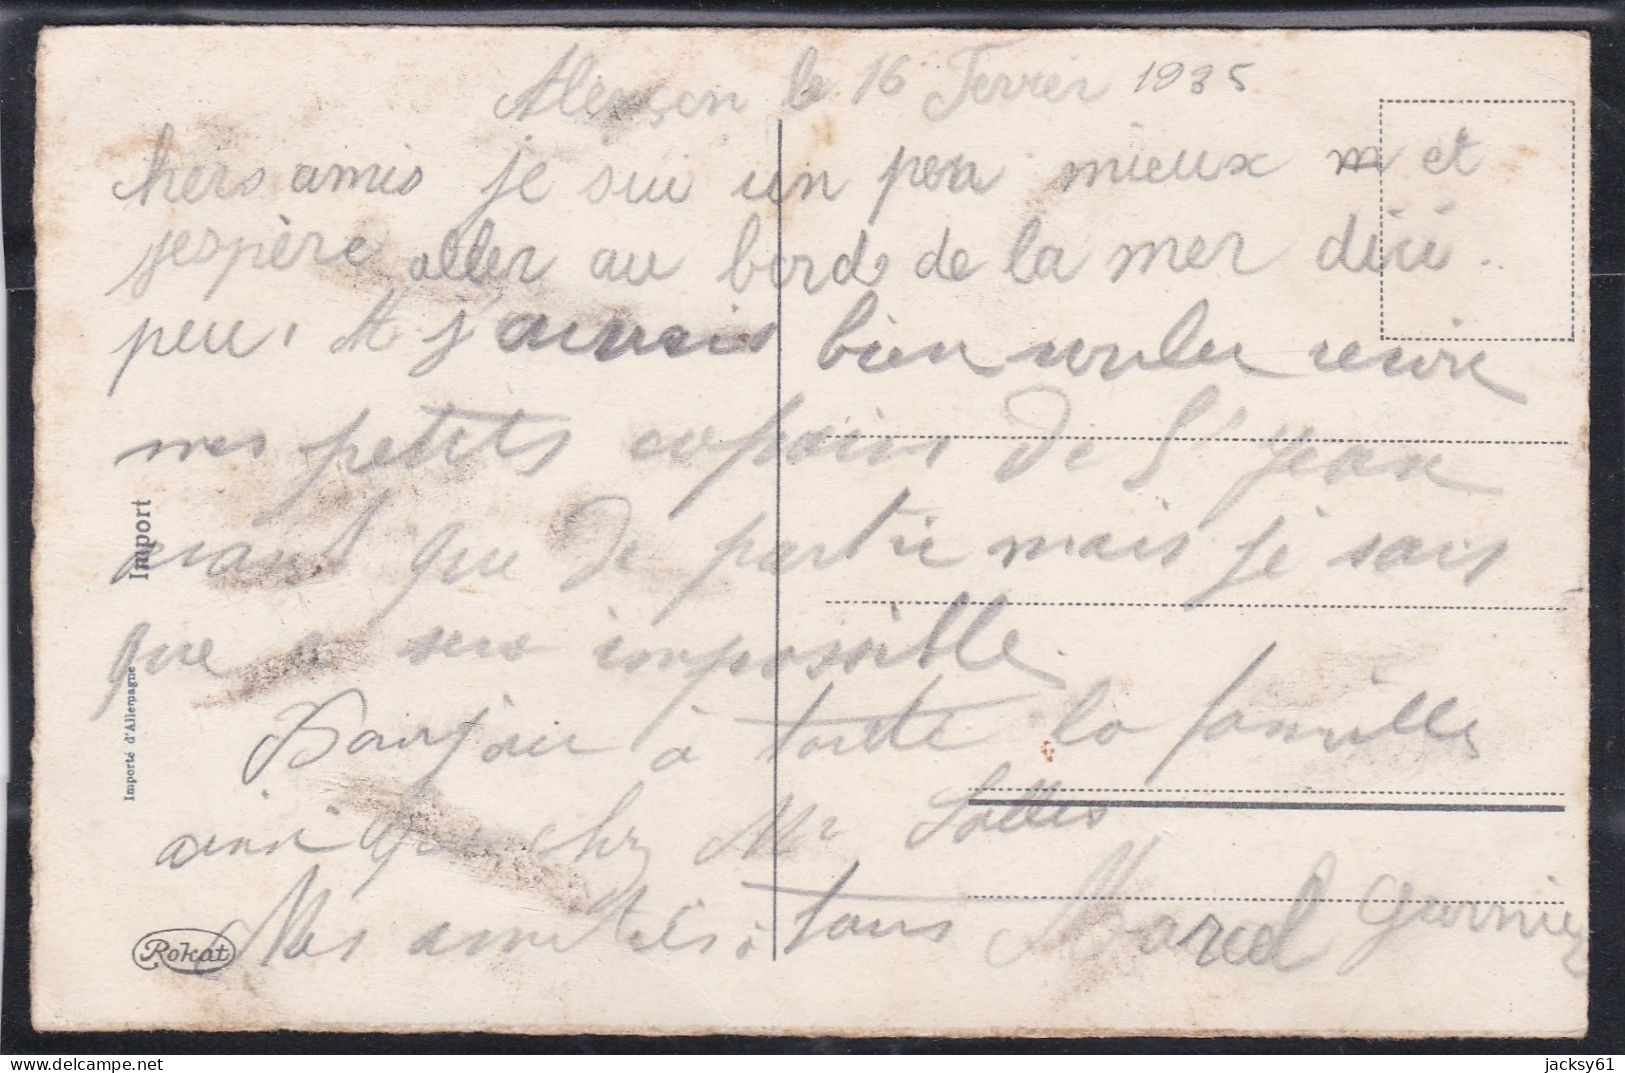 Alençon le 16 Fevrier 1935
chers amis je sui un peu mieux et
j'espère aller au bord de la mer dici
peu. Et j'aurais bien voulu revoir
mes petits copains de St Jean
avant que de partir mais je sais
que sa sera impossible.
Bonjour à toute la famille
ainsi que chez Mr Salles
Mes amitiés à tous Marcel Garnier
Import
Importé d'Allemagne
Rokat
jacksy61